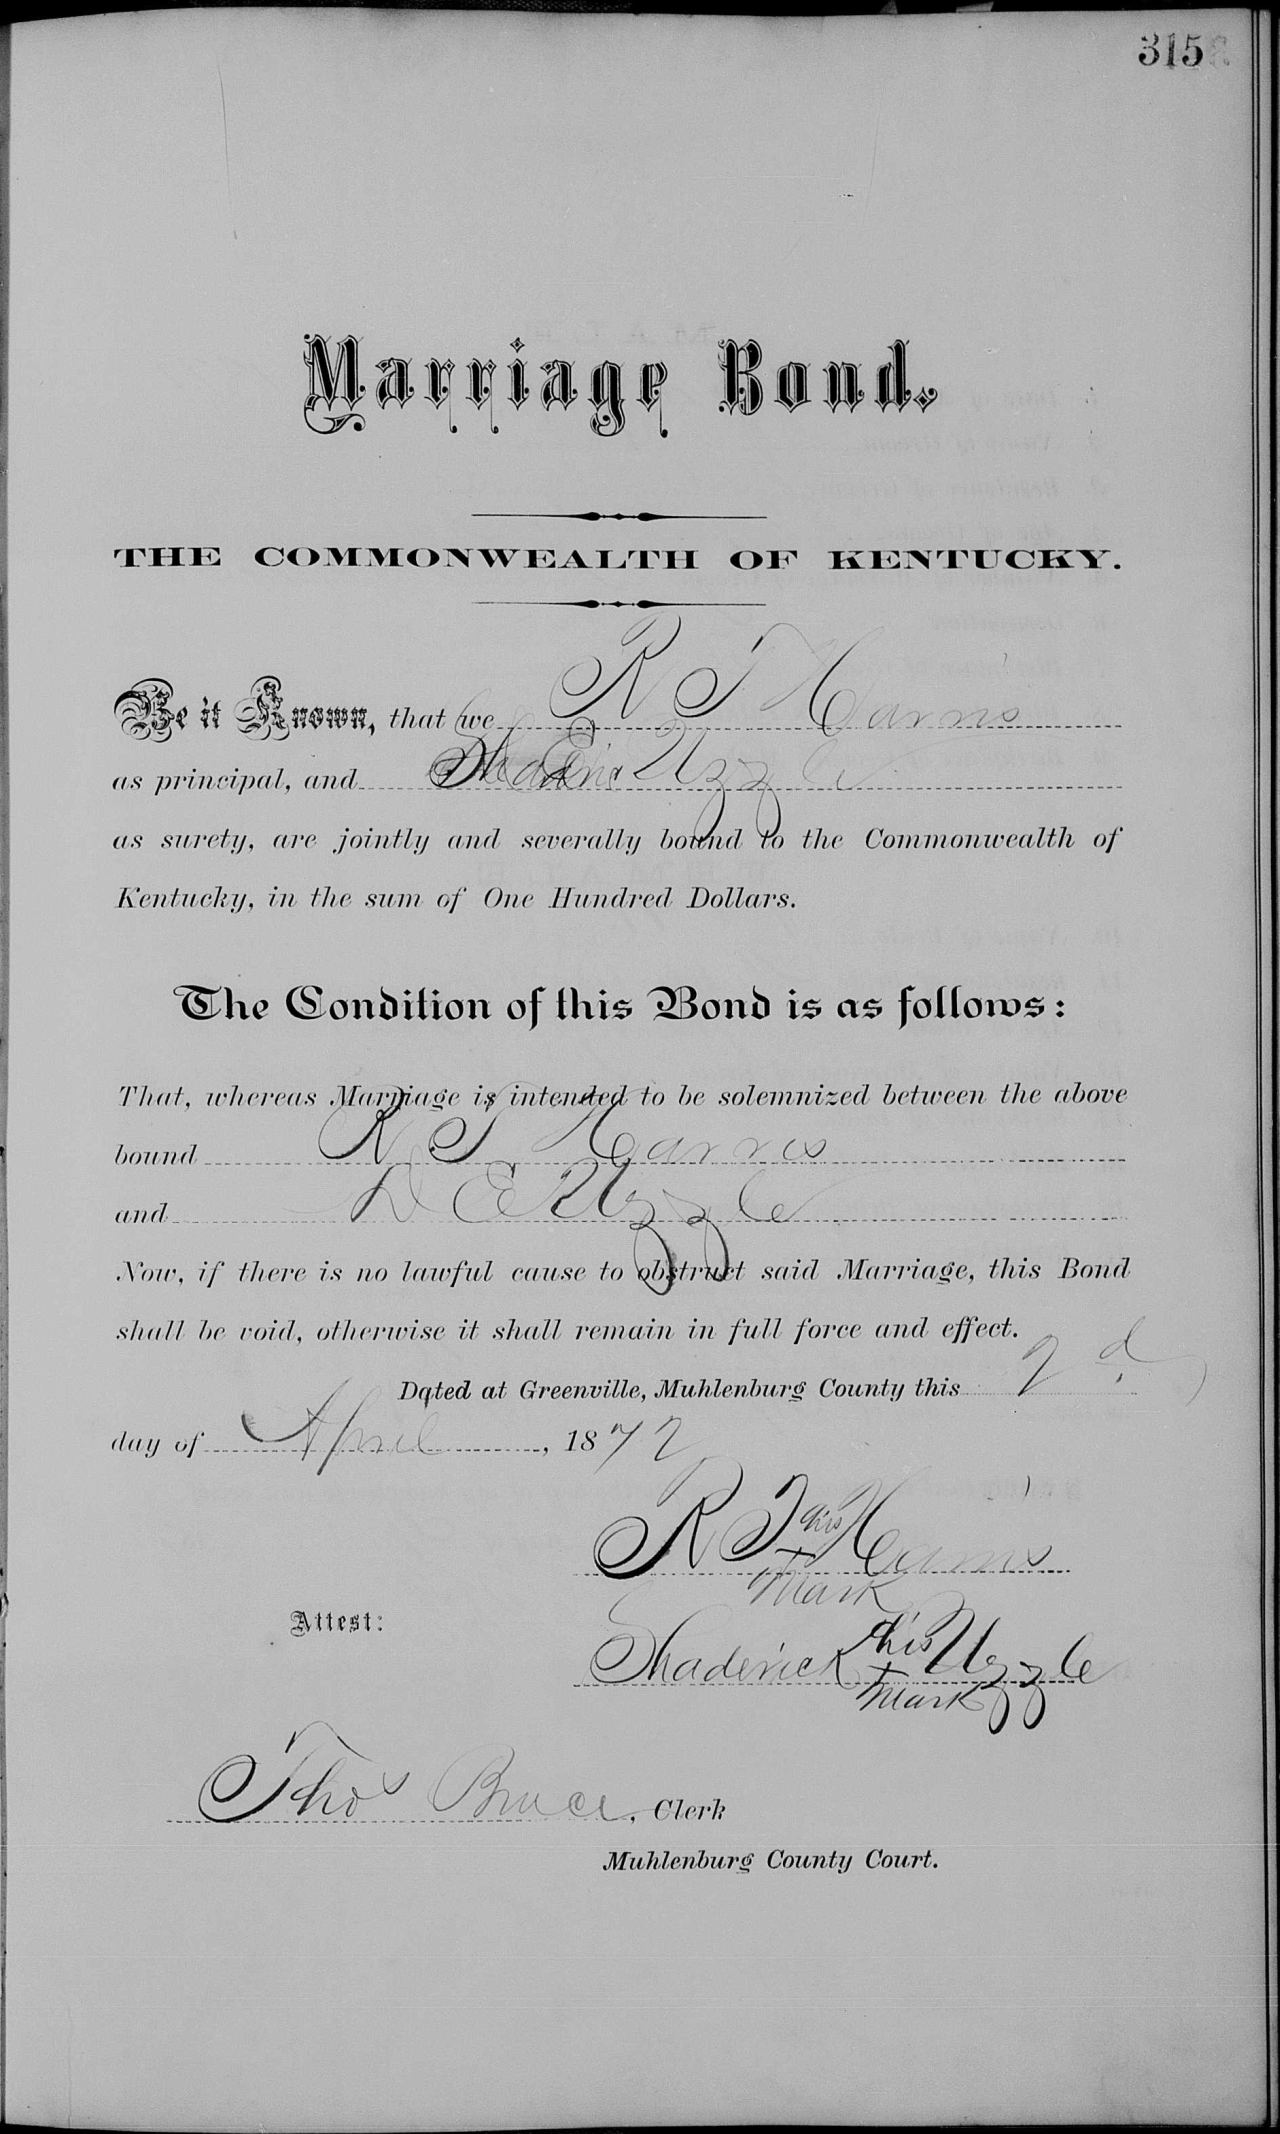 315
Marriage Bond.
THE COMMONWEALTH OF KENTUCKY.
Be it Known, that we R T Harris
as principal, and Uzzle
as surety, are jointly and severally bound to the Commonwealth of
Kentucky, in the sum of One Hundred Dollars.
The Condition of this Bond is as follows:
That, whereas Marriage is intended to be solemnized between the above
bound R T Harris
and D E Uzzle
Now, if there is no lawful cause to obstruct said Marriage, this Bond
shall be void, otherwise it shall remain in full force and effect.
Dated at Greenville, Muhlenburg County this 2d
day of April, 1872
R T his Harris
mark
Attest:
Shaderick his Uzzle
mark
Thos Bruce, Clerk
Muhlenburg County Court.